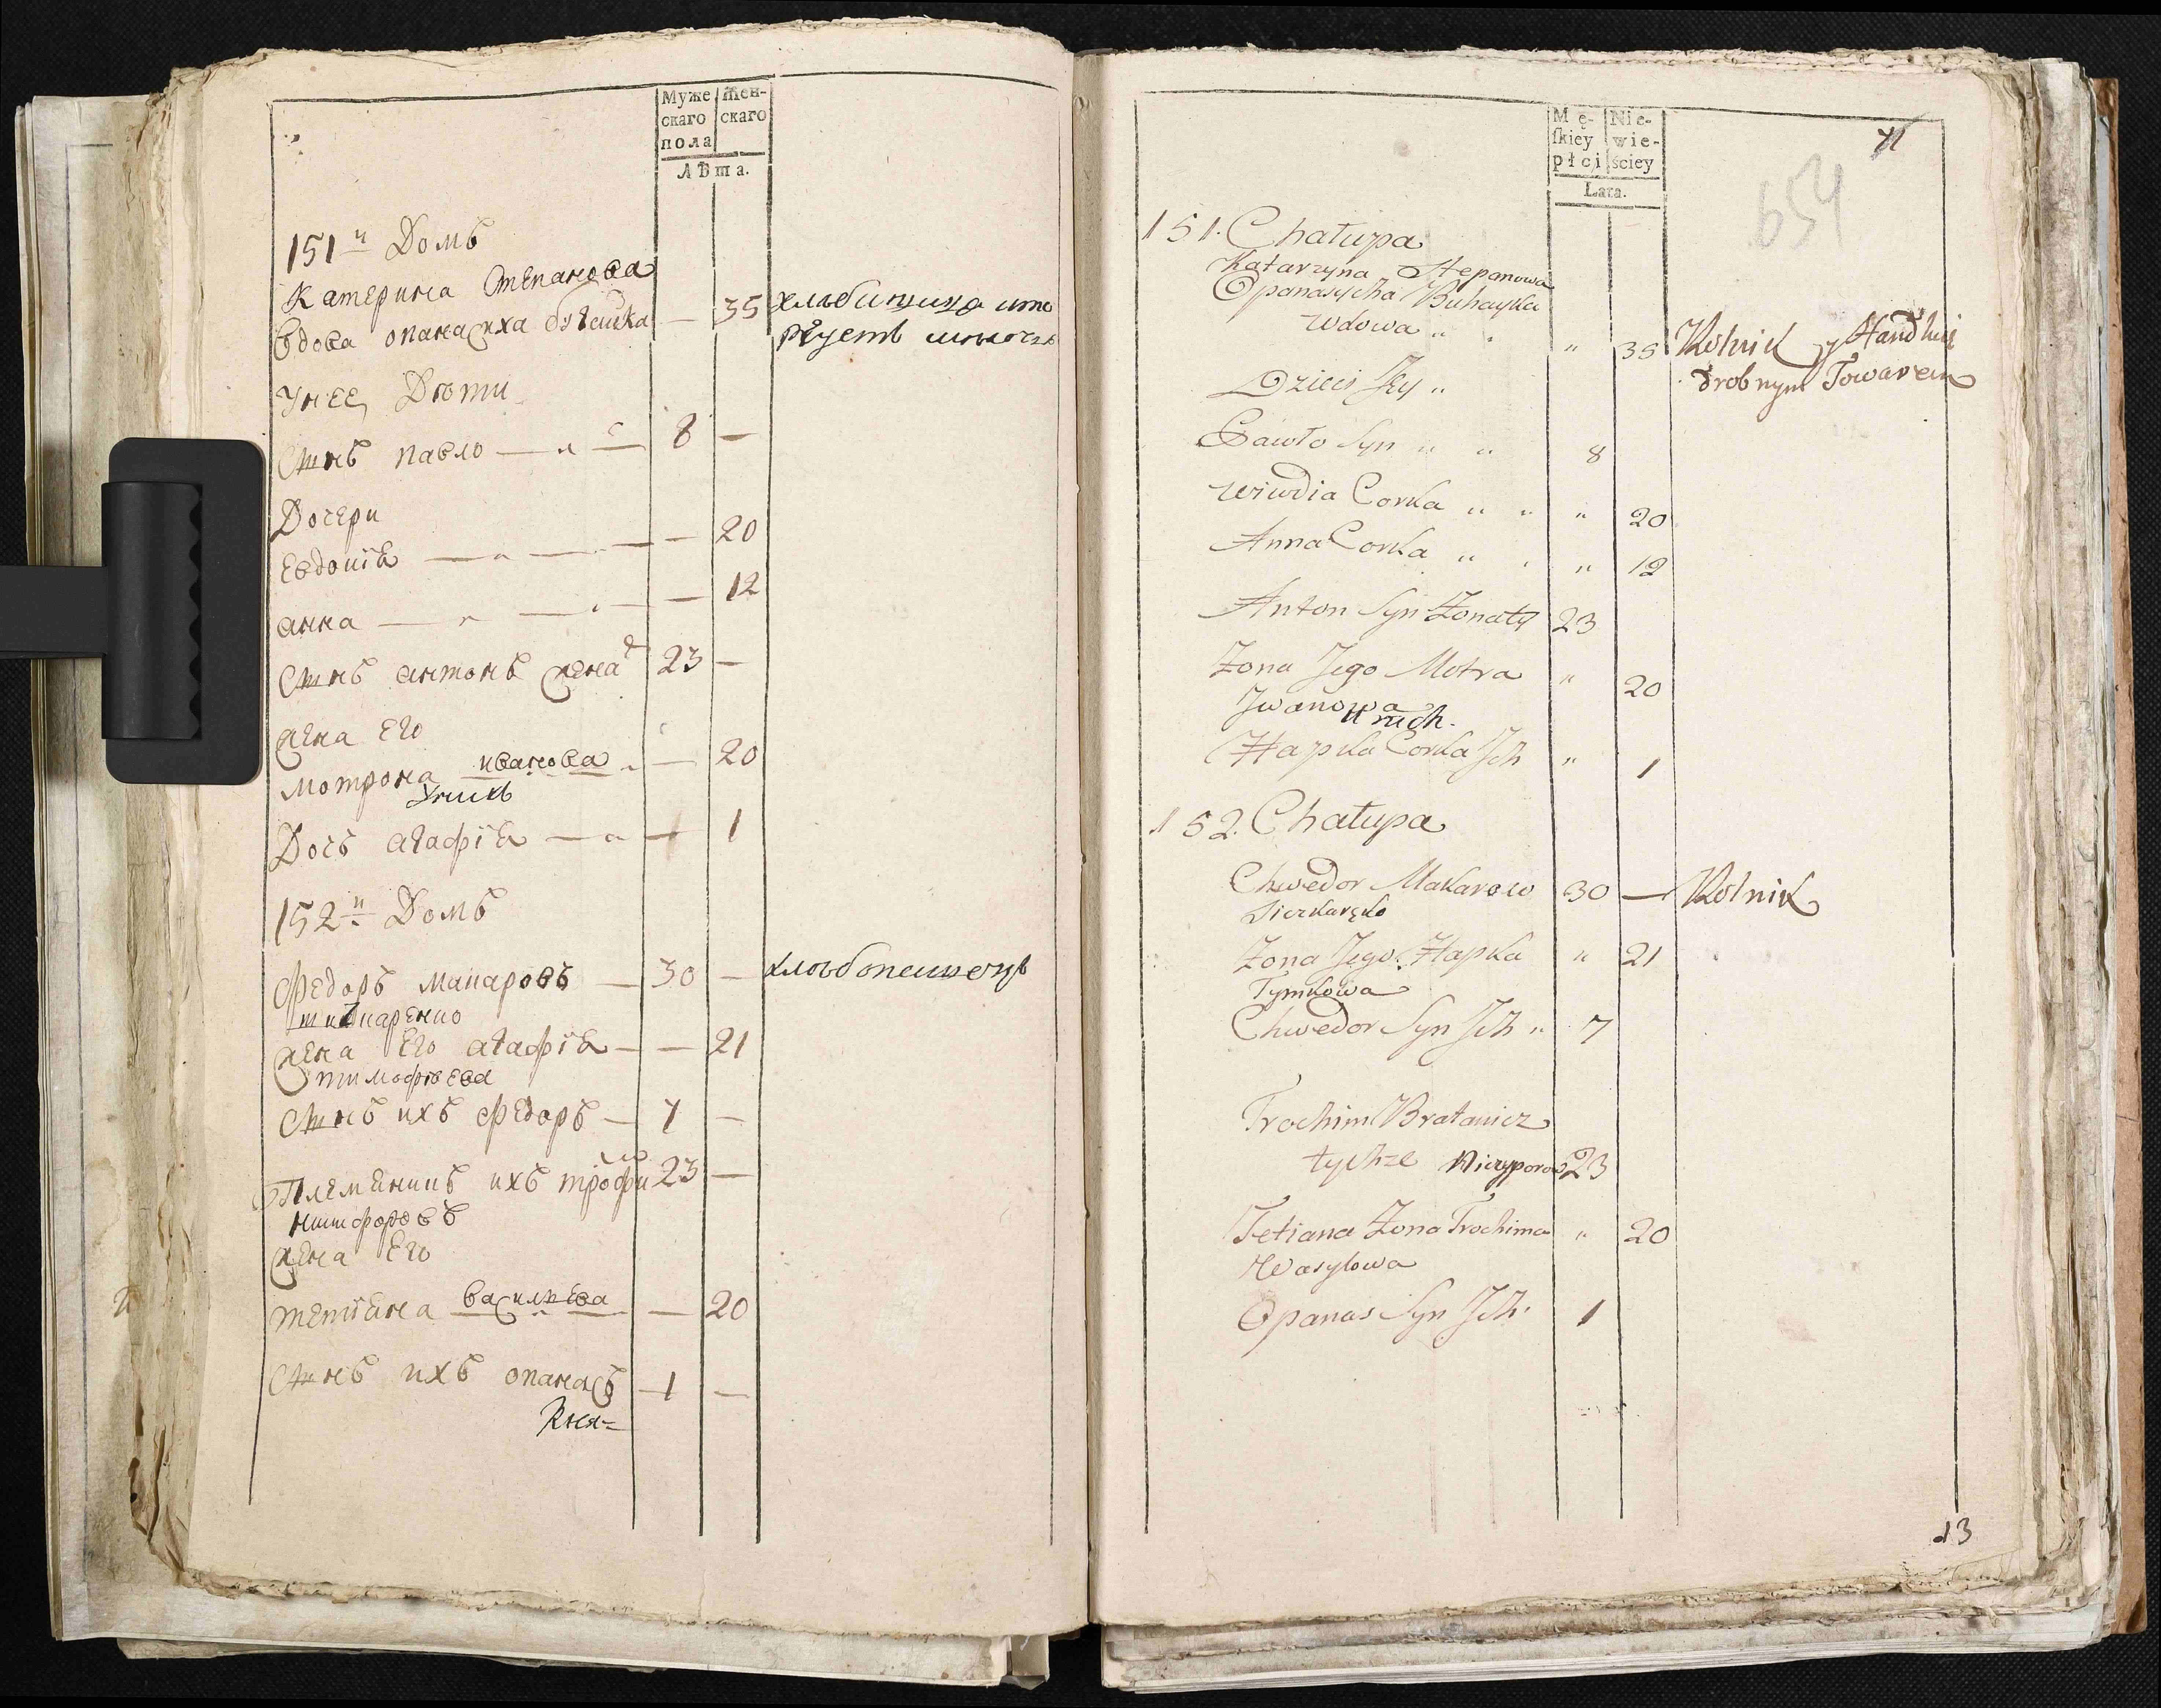 Муже
скаго
пола
Жен-
скаго
Лѣта.
151й Домъ
Катерина Степанова
вдова опанасиха бугайка — 35
Унее Дѣти
Сынъ павло — 8 —
Дочери
Евдокія — 20
анна — 12
Сынъ антонъ женат 23 —
жена Его
мотрона иванова — 20
Унихъ
Дочъ агафія — 1
152й Домъ
Федоръ макаровъ — 30 — хлебопашецъ
жена Его агафія — — 21
тимофѣева
Сынъ ихъ Федоръ — 7 —
Племяникъ ихъ трофим 23 —
никифоровъ
жена Его
тетіяна васильева — 20
Сынъ ихъ опанасъ — 1 —
Кня-
Mę-
skiey
płci
Nie-
wie-
ściey
Lata.
71
654
151. Chałupa
Katarzyna Stepanowa
Opanasycha Buhayka
Wdowa " " " 35 Rolnik y Handluj
drobnym Towarem
Dzieci Jey "
Pawło Syn " " 8
Wiwdia Corka " " " 20
Anna Corka " " " 12
Anton Syn Zonaty 23
Zona Jego Motra " 20
Jwanowa
U nich.
Hapka Corka Jch " 1
152. Chałupa
Chwedor Makarow 30 — Rolnik
Sieczkaręko
Zona Jego Hapka " 21
Tymkowa
Chwedor Syn Jch " 7
Trochim Bratanicz
tychze Niczyporow 23
Tetiana Zona Trochima " 20
Wasylowa
Opanas Syn Jch. 1
13